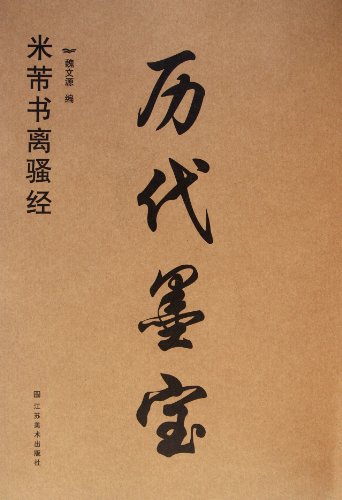 历代墨宝
魏文源 编
米芾书离骚经
江苏美术出版社